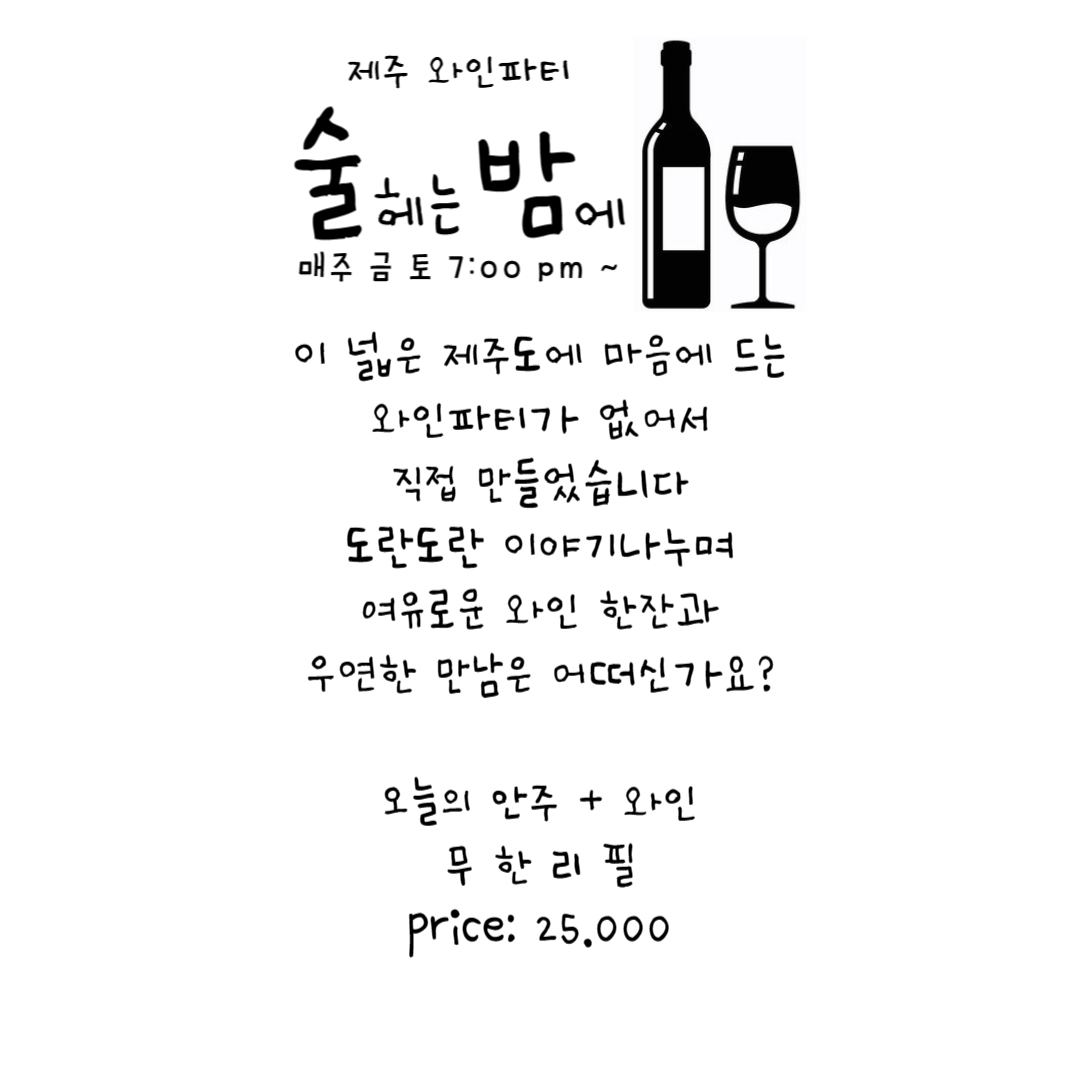 제주 와인파티
술헤는 밤에
매주 금 토 7:00 pm ~
이 넓은 제주도에 마음에 드는
와인파티가 없어서
직접 만들었습니다
도란도란 이야기나누며
여유로운 와인 한잔과
우연한 만남은 어떠신가요?
오늘의 안주 + 와인
무 한 리 필
price: 25.000